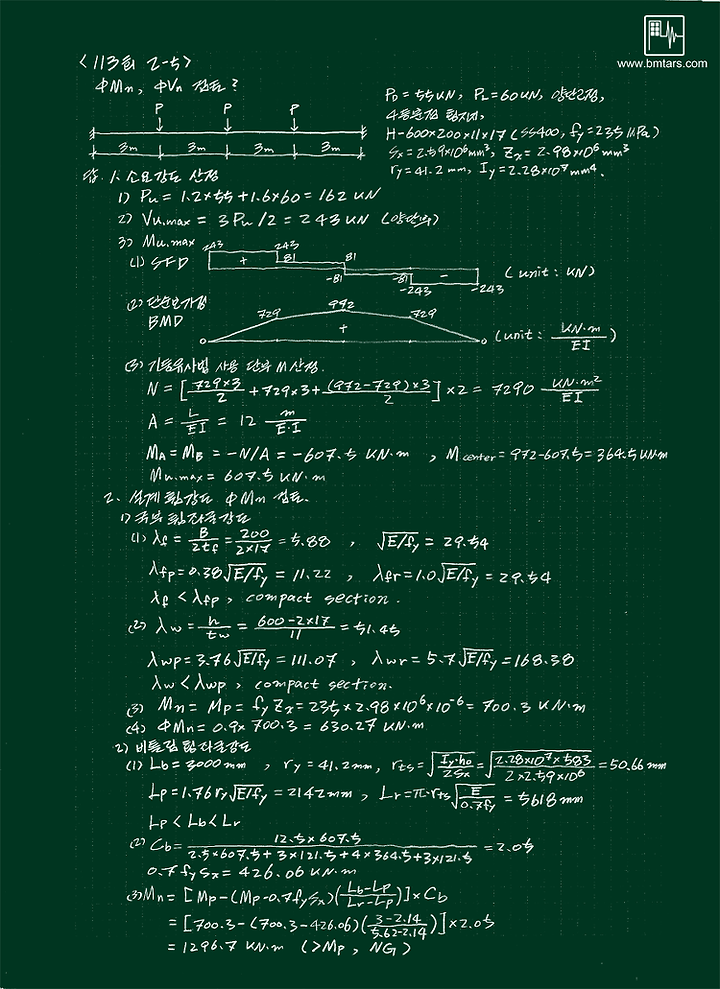 www.bmtars.com
<113회 2-5>
ΦMn, ΦVn 검토?
P P P
3m 3m 3m 3m
PD = 55kN, PL = 60kN, 양단고정,
4등분점 횡지지,
H-600×200×11×17 (SS400, fy = 235 MPa)
Sx = 2.59×10⁶mm³, Zx = 2.98×10⁶mm³
ry = 41.2mm, Iy = 2.28×10⁷mm⁴.
답. 1. 소요강도 산정
1) Pu = 1.2×55 + 1.6×60 = 162 kN
2) Vu.max = 3Pu/2 = 243 kN (양단부)
3) Mu.max
(1) SFD 243 243 + 81 81 -81 -81 - -243 -243 (unit : kN)
(2) 단순보가정
BMD 729 972 729 + (unit : kN·m/EI)
(3) 기둥유사법 사용 단부 M 산정.
N = [729×3/2 + 729×3 + (972-729)×3/2] ×2 = 7290 kN·m²/EI
A = L/EI = 12 m/E·I
MA = MB = -N/A = -607.5 kN·m , Mcenter = 972-607.5 = 364.5 kN·m
Mu.max = 607.5 kN·m
2. 설계휨강도 ΦMn 검토.
1) 국부휨좌굴강도
(1) λf = B/2tf = 200/2×17 = 5.88 , √E/fy = 29.54
λfp = 0.38√E/fy = 11.22 , λfr = 1.0√E/fy = 29.54
λf < λfp , compact section.
(2) λw = h/tw = 600-2×17/11 = 51.45
λwp = 3.76√E/fy = 111.07 , λwr = 5.7√E/fy = 168.38
λw < λwp , compact section.
(3) Mn = Mp = fy Zx = 235×2.98×10⁶×10⁻⁶ = 700.3 kN·m
(4) ΦMn = 0.9× 700.3 = 630.27 kN·m
2) 비틀림 횡좌굴강도
(1) Lb = 3000mm , ry = 41.2mm, rts = √Iy·ho/2Sx = √2.28×10⁷×583/2×2.59×10⁶ = 50.66 mm
Lp = 1.76ry√E/fy = 2142mm , Lr = π·rts√E/0.7fy = 5618mm
Lp < Lb < Lr
(2) Cb = 12.5×607.5/2.5×607.5 + 3×121.5 + 4×364.5 + 3×121.5 = 2.05
0.7 fy Sx = 426.06 kN·m
(3) Mn = [Mp-(Mp-0.7fySx)(Lb-Lp/Lr-Lp)]×Cb
= [700.3-(700.3-426.06)(3-2.14/5.62-2.14)]×2.05
= 1296.7 kN·m (>Mp, NG)